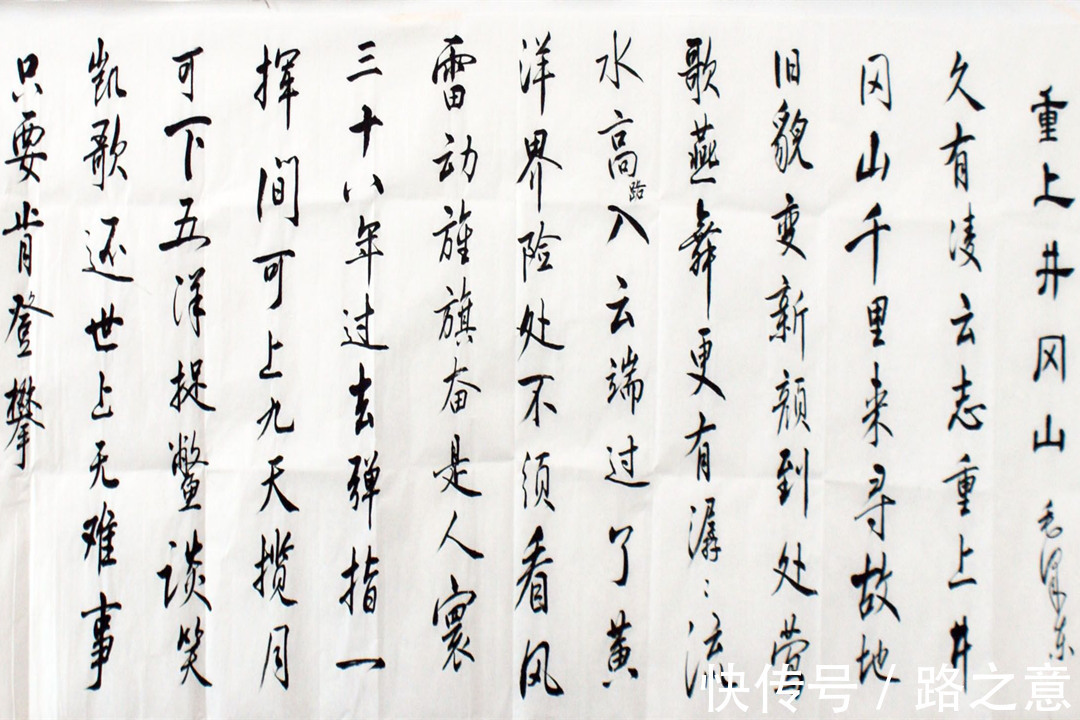 重上井冈山 毛泽东
久有凌云志重上井
冈山千里来寻故地
旧貌变新颜到处莺
歌燕舞更有潺〻流
水高路入云端过了黄
洋界险处不须看风
雷动旌旗奋是人寰
三十八年过去弹指一
挥间可上九天揽月
可下五洋捉鳖谈笑
凯歌还世上无难事
只要肯登攀
快传号 / 路之意